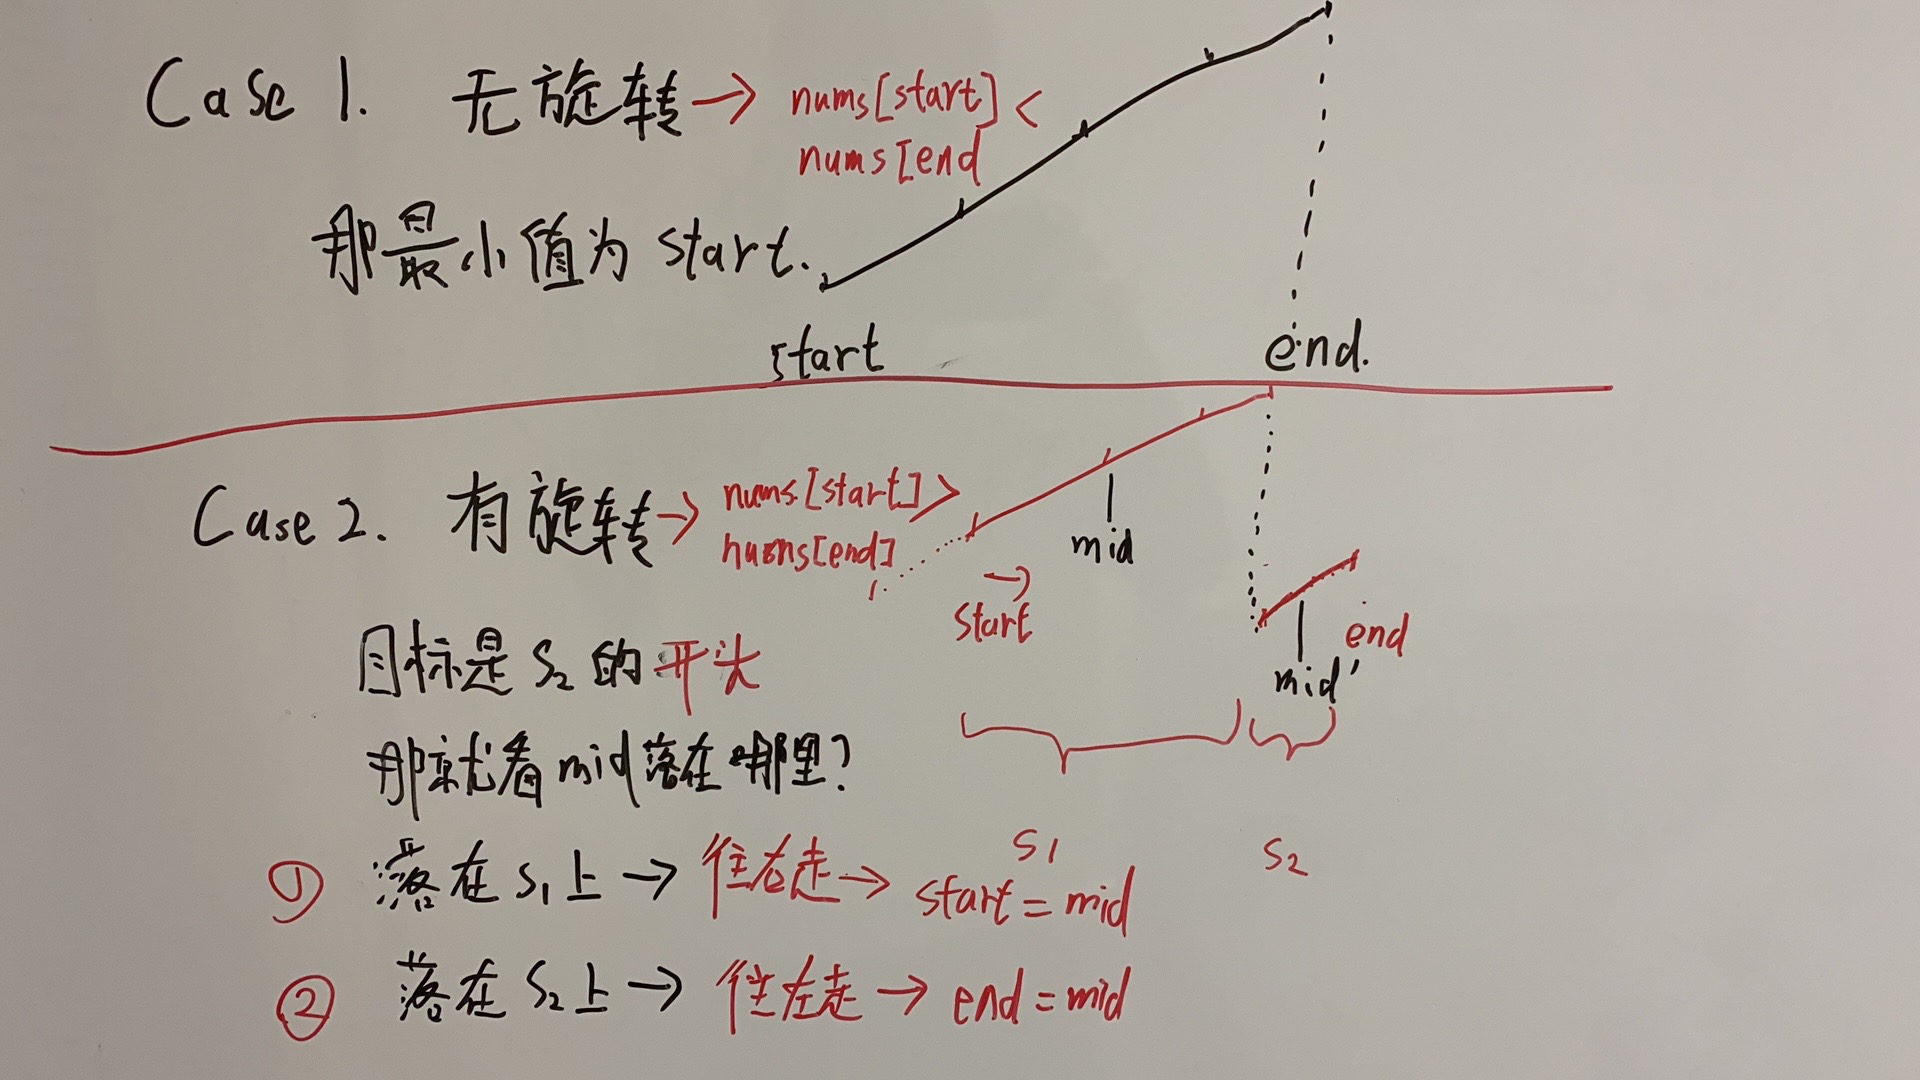 Case 1. 无旋转→ nums[start] <
nums[end
那最小值为 start.
start
end.
Case 2. 有旋转→ nums[start] >
nums[end]
mid
start
end
mid'
目标是 S2 的 开头
那就看mid落在哪里?
S1
S2
① 落在 S1上 → 往右走 → start = mid
② 落在 S2上 → 往左走 → end = mid